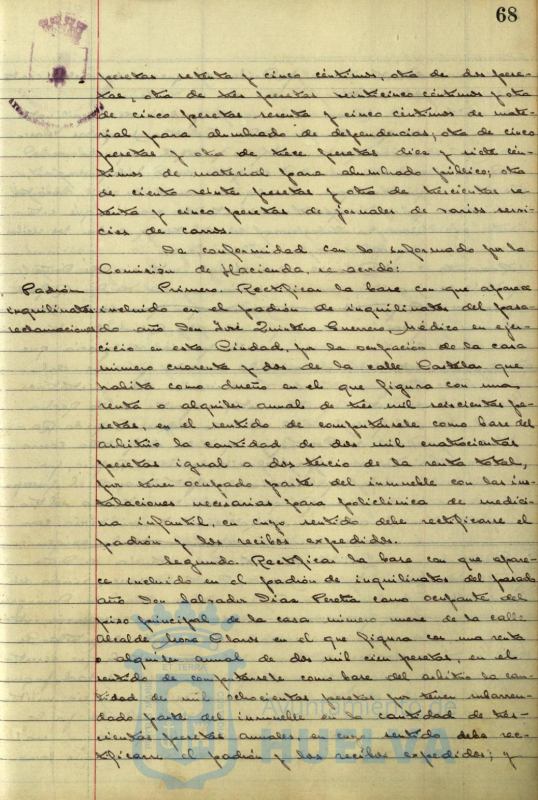 68
pesetas setenta y cinco céntimos, otra de dos pese-
tas, otra de tres pesetas veinticinco céntimos y otra
de cinco pesetas sesenta y cinco céntimos de mate-
rial para alumbrado de dependencias; otra de cinco
pesetas y otra de trece pesetas diez y siete cén-
timos de material para alumbrado público; otra
de ciento veinte pesetas y otra de trescientas se-
tenta y cinco pesetas de jornales de varios servi-
cios de carros.
De conformidad con lo informado por la
Comisión de Hacienda, se acordó:
Padrón
inquilinatos
reclamaciones
Primero. Rectificar la base con que aparece
incluido en el padrón de inquilinatos del pasa-
do año Don José Quintero Guerrero, Médico en ejer-
cicio en esta Ciudad, por la ocupación de la casa
número cuarenta y dos de la calle Castelar que
habita como dueño en el que figura con una
renta o alquiler anual de tres mil seiscientas pe-
setas, en el sentido de computársele como base del
arbitrio la cantidad de dos mil cuatrocientas
pesetas igual a dos tercio de la renta total,
por tener ocupado parte del inmueble con las ins-
talaciones necesarias para policlínica de medici-
na infantil, en cuyo sentido debe rectificarse el
padrón y los recibos expedidos.
Segundo. Rectificar la base con que apare-
ce incluido en el padrón de inquilinatos del pasado
año Don Salvador Díaz Pereña como ocupante del
piso principal de la casa número nueve de la calle
Alcalde Mora Claros en el que figura con una renta
o alquiler anual de dos mil cien pesetas, en el
sentido de computársele como base del arbitrio la can-
tidad de mil ochocientas pesetas por tener subarren-
dado parte del inmueble en la cantidad de tres-
cientas pesetas anuales en cuyo sentido debe rec-
tificarse el padrón y los recibos expedidos; y
Ayuntamiento de
HUELVA